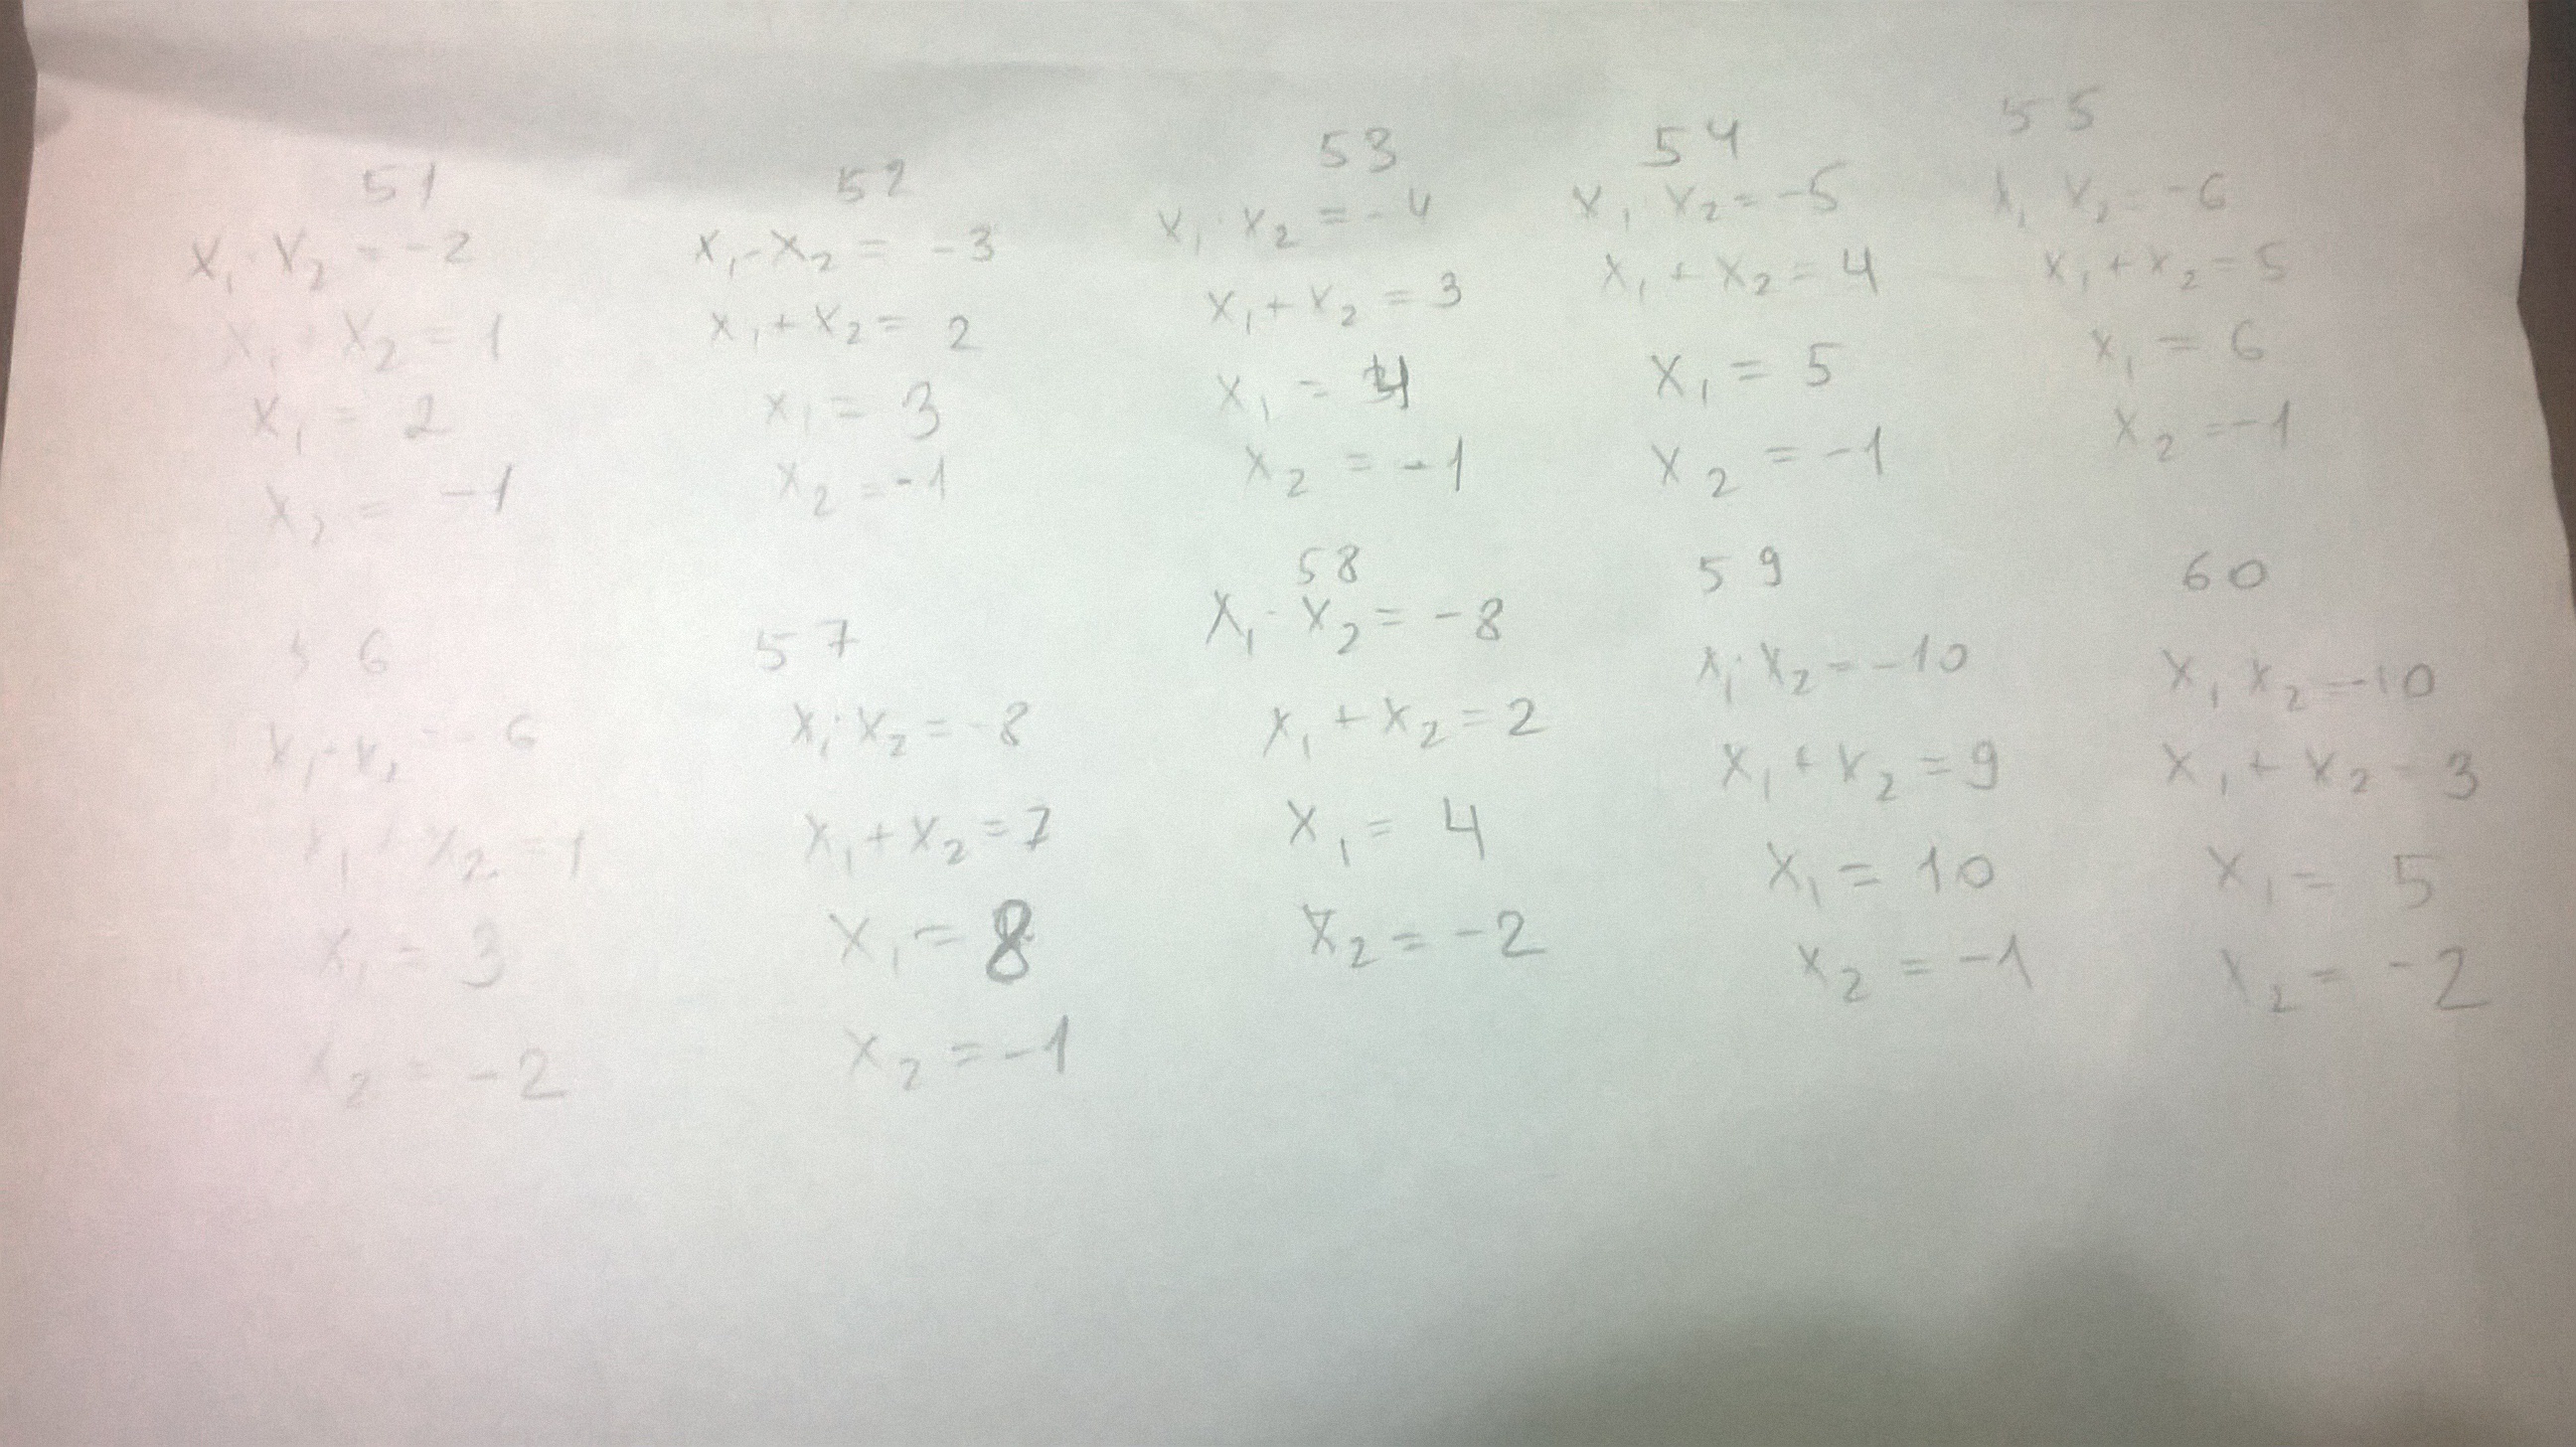 51
x₁ · x₂ = -2
x₁ + x₂ = 1
x₁ = 2
x₂ = -1
52
x₁ - x₂ = -3
x₁ + x₂ = 2
x₁ = 3
x₂ = -1
53
x₁ · x₂ = -4
x₁ + x₂ = 3
x₁ = 4
x₂ = -1
54
x₁ x₂ = -5
x₁ + x₂ = 4
x₁ = 5
x₂ = -1
55
x₁ x₂ = -6
x₁ + x₂ = 5
x₁ = 6
x₂ = -1
56
x₁ · x₂ = -6
x₁ + x₂ = 1
x₁ = 3
x₂ = -2
57
x₁ · x₂ = -8
x₁ + x₂ = 7
x₁ = 8
x₂ = -1
58
x₁ · x₂ = -8
x₁ + x₂ = 2
x₁ = 4
x₂ = -2
59
x₁ · x₂ = -10
x₁ + x₂ = 9
x₁ = 10
x₂ = -1
60
x₁ x₂ = -10
x₁ + x₂ = 3
x₁ = 5
x₂ = -2